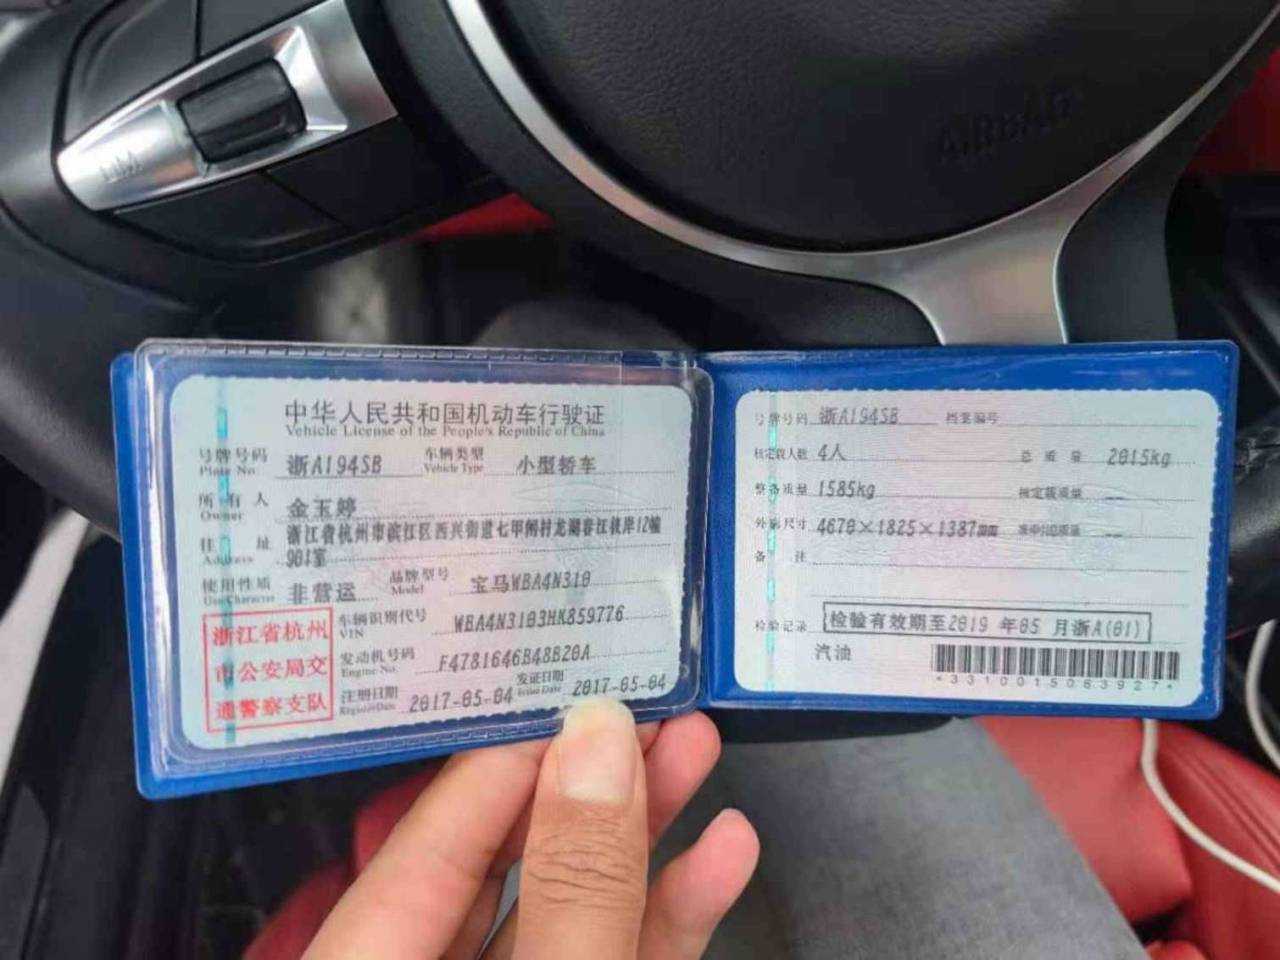 AIRBAG
中华人民共和国机动车行驶证
Vehicle License of the People's Republic of China
号牌号码 浙A194SB 车辆类型 小型轿车
Plate No. Vehicle Type
所有人 金玉婷
Owner
住址 浙江省杭州市滨江区西兴街道七甲闸村龙湖春江彼岸12幢
Address 901室
使用性质 非营运 品牌型号 宝马WBA4N310
Use Character Model
浙江省杭州
市公安局交
通警察支队
车辆识别代号 WBA4N3103HK859776
VIN
发动机号码 F4781646B48B20A
Engine No.
注册日期 2017-05-04 发证日期 2017-05-04
Register Date Issue Date
号牌号码 浙A194SB 档案编号
核定载人数 4人 总质量 2015kg
整备质量 1585kg 核定载质量 --
外廓尺寸 4670×1825×1387mm 准牵引总质量 --
备注
检验记录 检验有效期至2019年05月浙A(01)
汽油
*3310015063927*